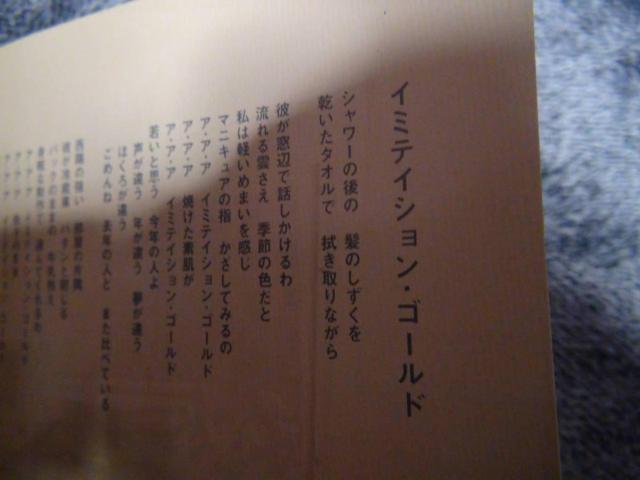 イミテイション・ゴールド
シャワーの後の 髪のしずくを
乾いたタオルで 拭き取りながら
彼が窓辺で話しかけるわ
流れる雲さえ 季節の色だと
私は軽いめまいを感じ
マニキュアの指 かざしてみるの
ア・ア・ア イミテイション・ゴールド
ア・ア・ア 焼けた素肌が
ア・ア・ア イミテイション・ゴールド
若いと思う 今年の人よ
声が違う 年が違う 夢が違う
ほくろが違う
ごめんね 去年の人と また比べている
西陽の強い 部屋の片隅
彼が冷蔵庫 バタンと閉じる
パックのままの 牛乳抱え